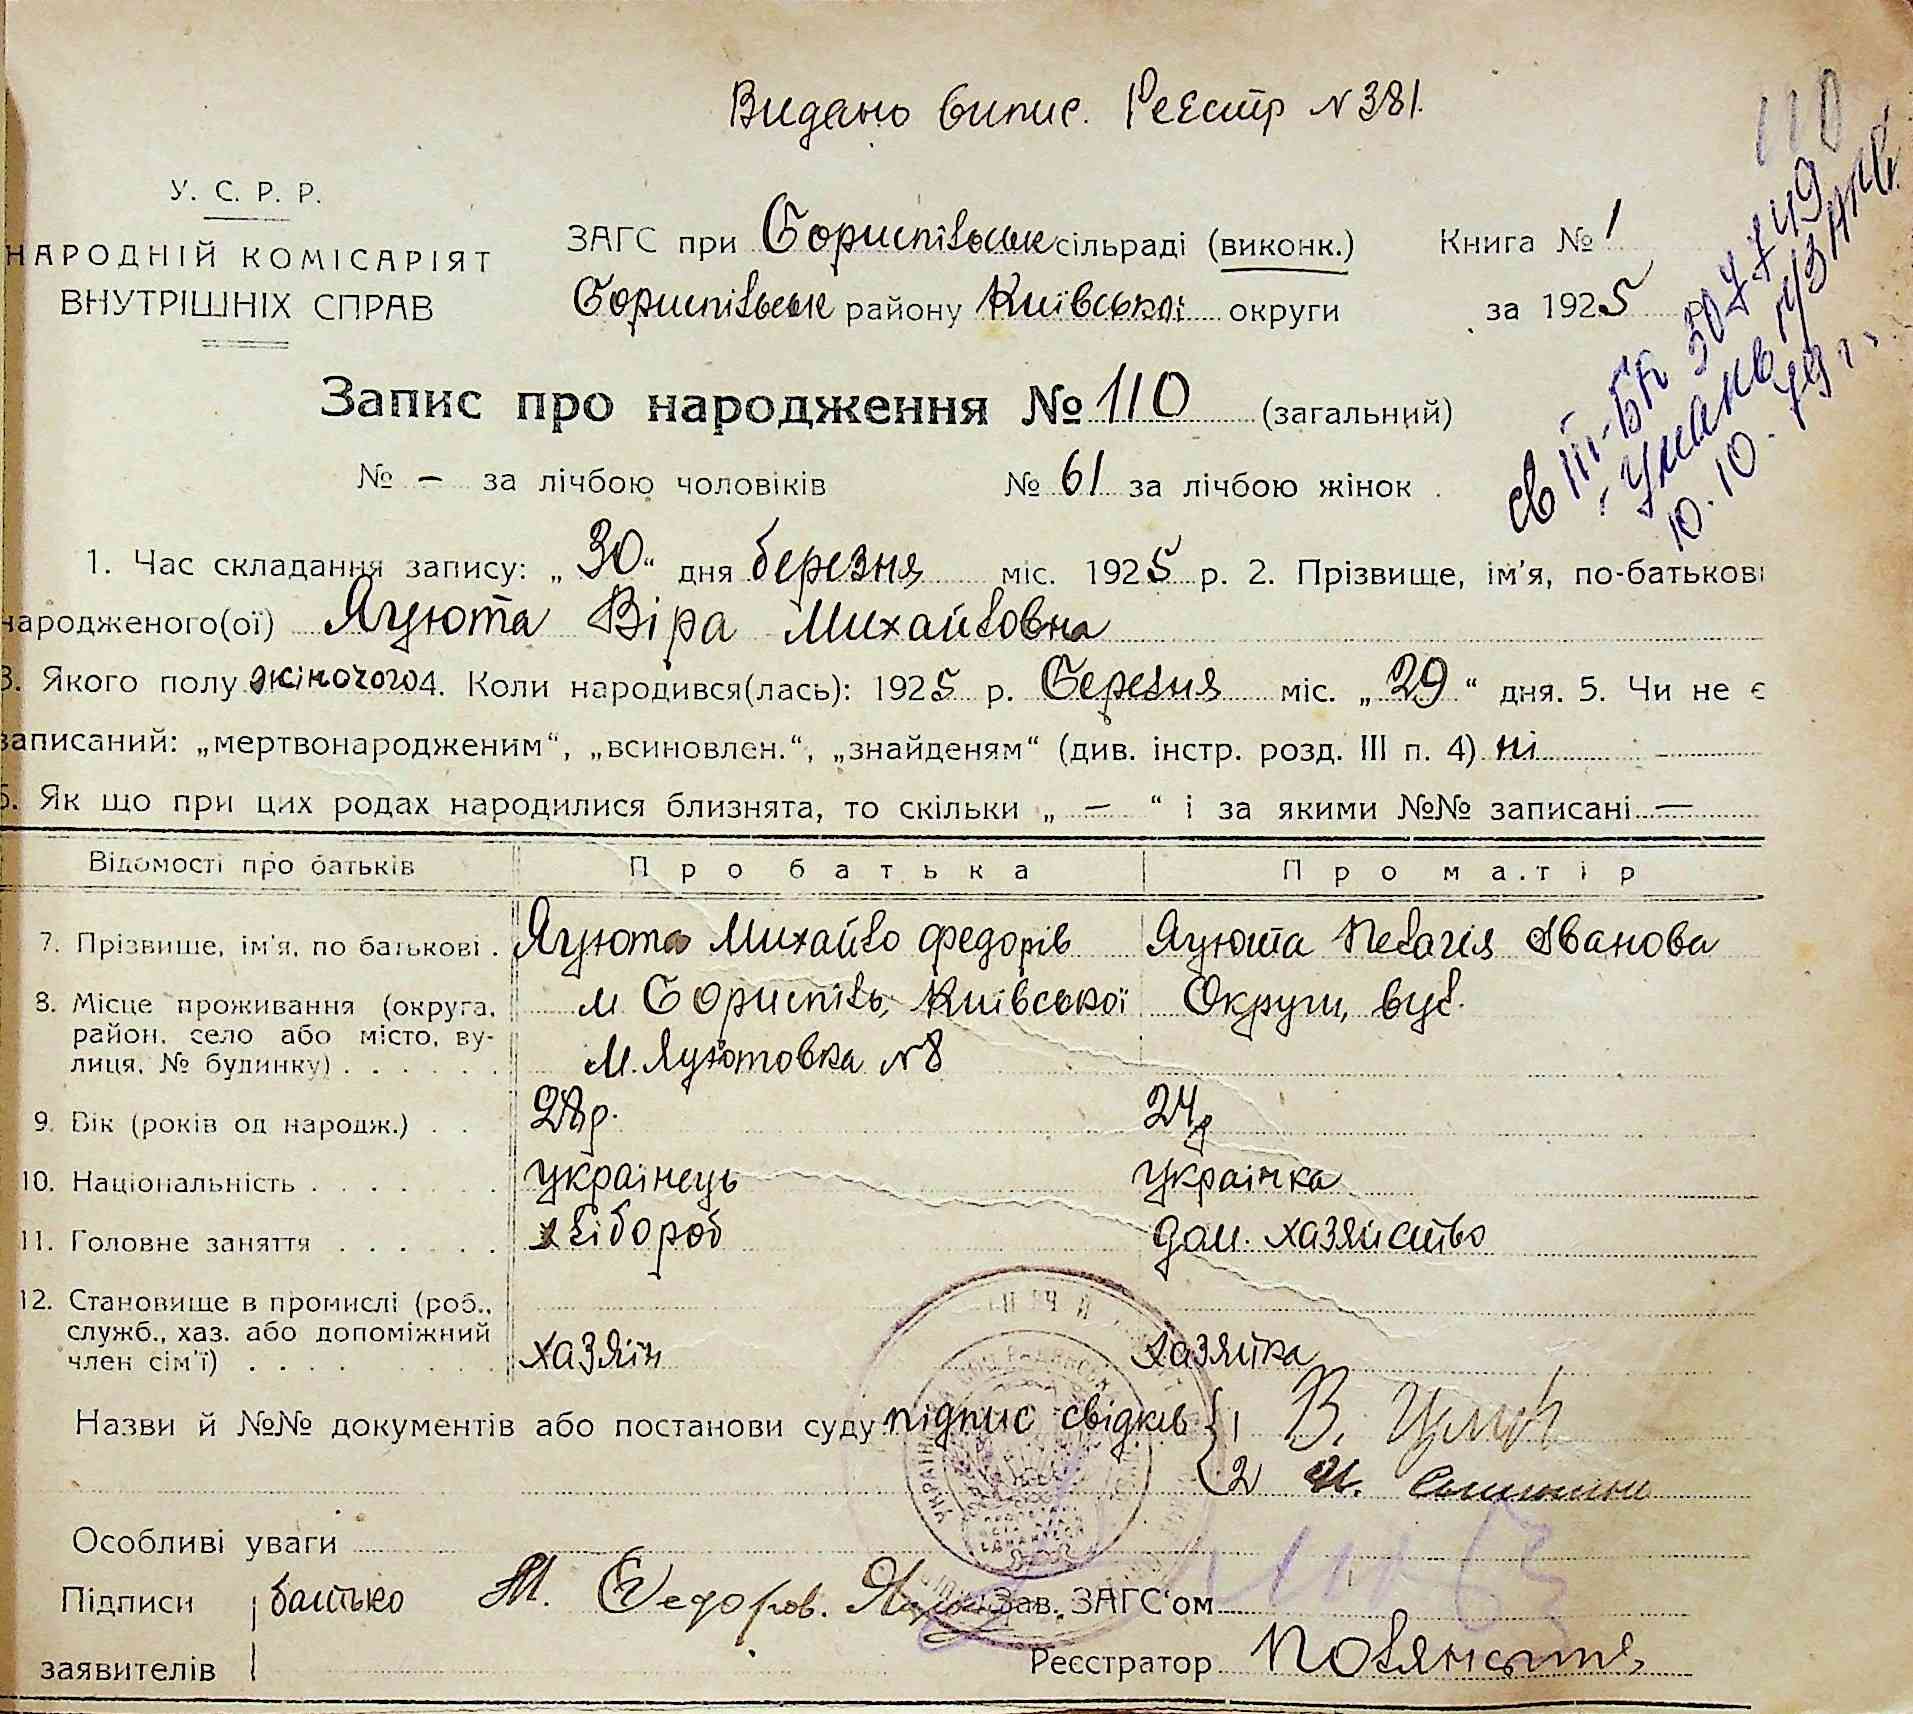 Видано випис. Реєстр N 381.
110
У. С. Р. Р.
НАРОДНІЙ КОМІСАРІЯТ
ВНУТРІШНІХ СПРАВ
ЗАГС при Бориспільськ сільраді (виконк.)
Книга № 1
Бориспільськ району Київської округи
за 1925 р.
св III-БК 307749
10.10.79 г.
Запис про народження № 110 (загальний)
№ – за лічбою чоловіків № 61 за лічбою жінок
1. Час складання запису: „30“ дня березня міс. 1925 р. 2. Прізвище, ім'я, по-батькові
народженого(ої) Яцюта Віра Михайловна
3. Якого полу жіночого 4. Коли народився(лась): 1925 р. Березня міс. „29“ дня. 5. Чи не є
записаний: „мертвонародженим“, „всиновлен.“, „знайденям“ (див. інстр. розд. III п. 4) ні
6. Як що при цих родах народилися близнята, то скільки „ – “ і за якими №№ записані –
Відомості про батьків Про батька Про матір
7. Прізвище, ім'я, по батькові . Яцюта Михайло Федорів Яцюта Пелагія Іванова
8. Місце проживання (округа, м Бориспіль, Київської Округи, вул.
район, село або місто, ву-
лиця, № будинку) . . . . . . М. Яцютовка N 8
9. Вік (років од народж.) . . 28 р. 24 р
10. Національність . . . . . . . українець українка
11. Головне заняття . . . . . . хлібороб дом. хазяйство
12. Становище в промислі (роб.,
служб., хаз. або допоміжний
член сім'ї) . . . . хазяїн хазяйка
Назви й №№ документів або постанови суду підпис свідків { 1 В.
2 И.
Особливі уваги
Підписи батько М. Федоров. Зав. ЗАГС'ом
заявителів Реєстратор